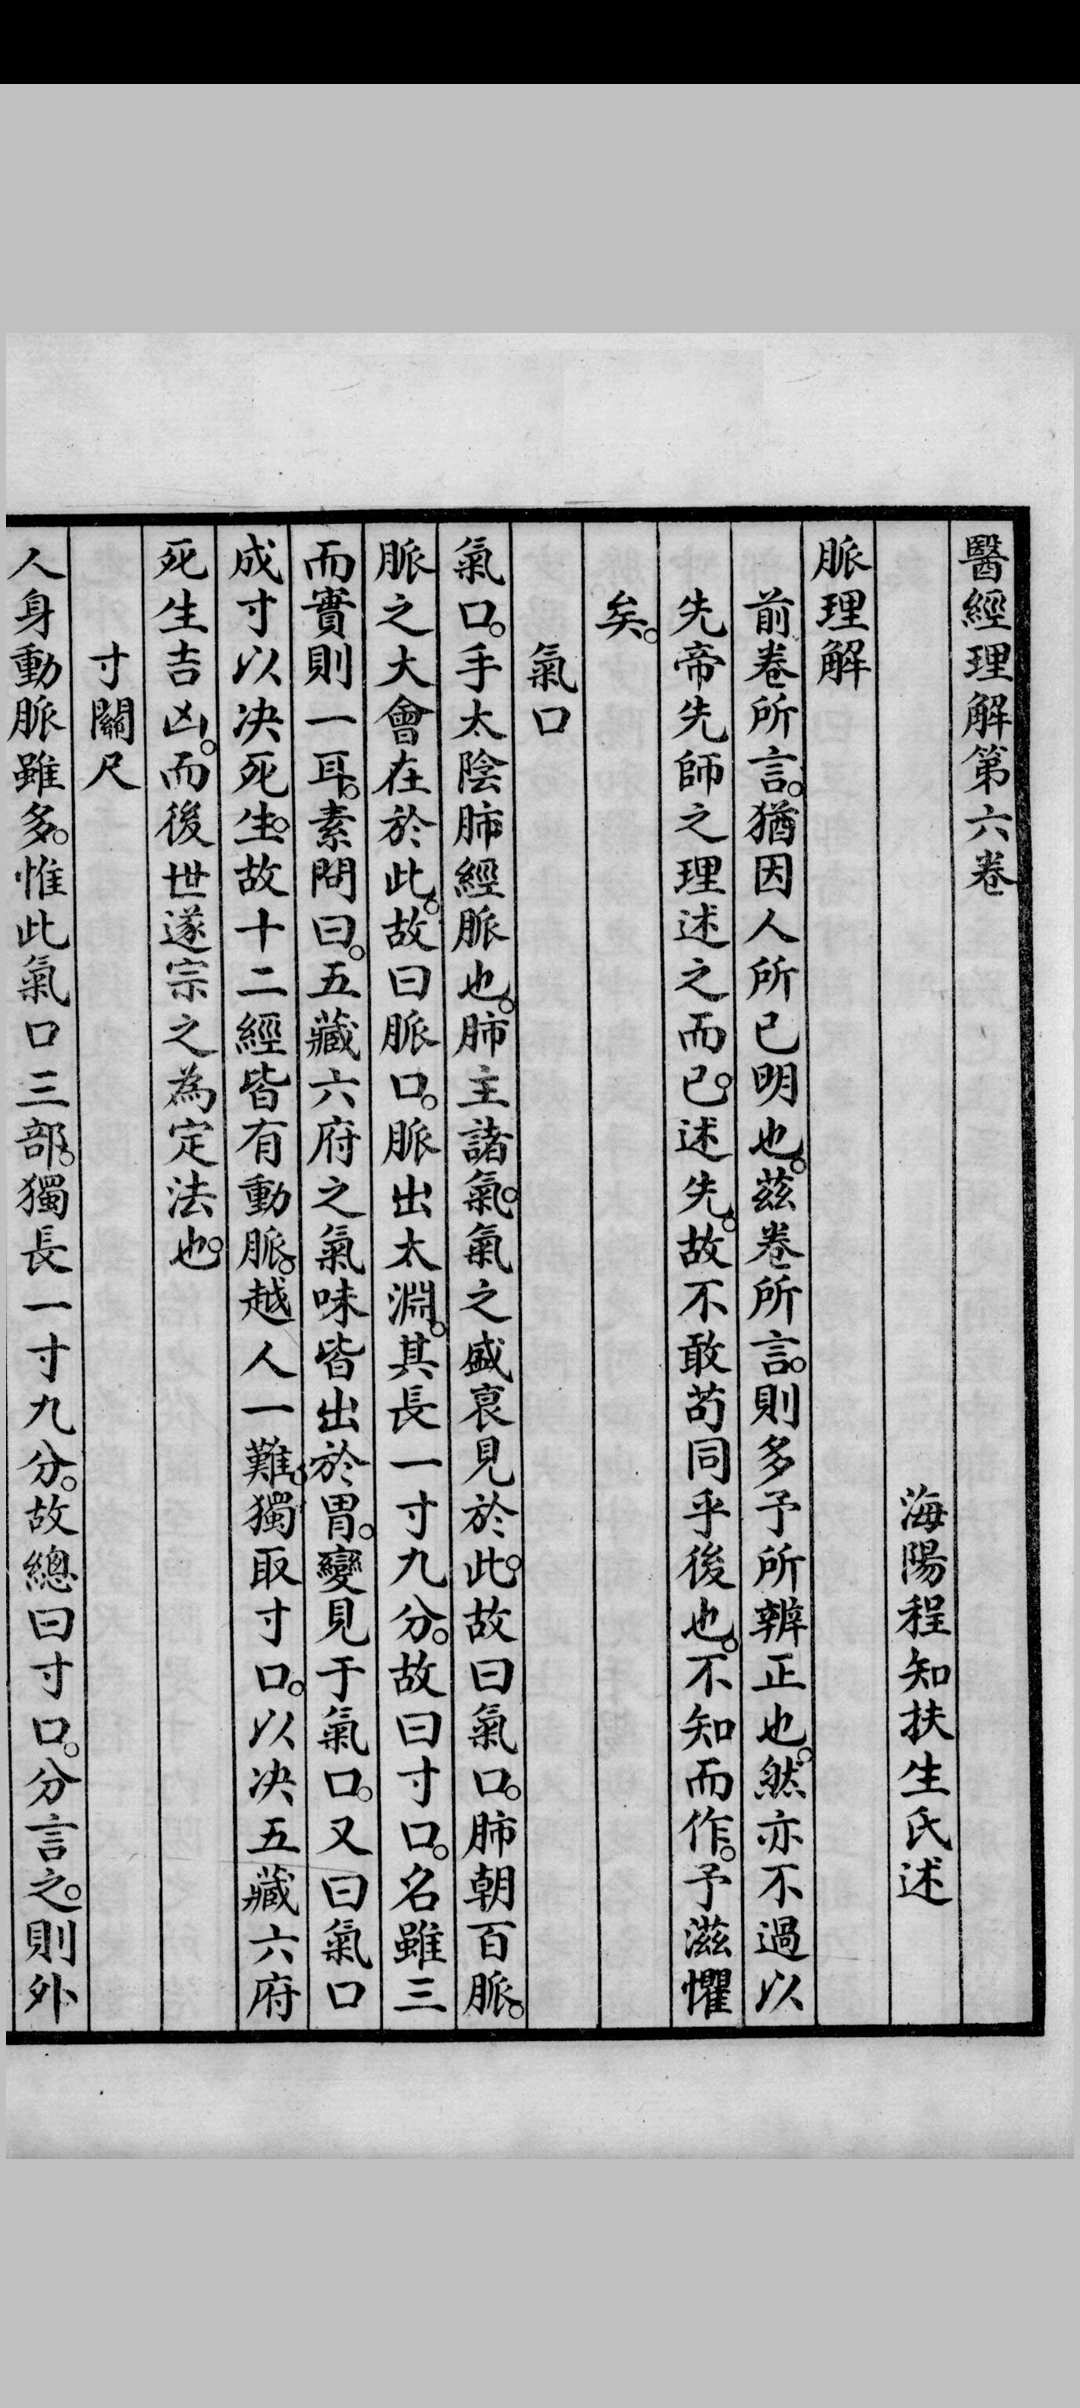 醫經理解第六卷
海陽程知扶生氏述
脈理解
前卷所言。猶因人所已明也。茲卷所言。則多予所辨正也。然亦不過以
先帝先師之理述之而已。述先。故不敢苟同乎後也。不知而作。予滋懼
矣。
氣口
氣口。手太陰肺經脈也。肺主諸氣。氣之盛衰見於此。故曰氣口。肺朝百脈。
脈之大會在於此。故曰脈口。脈出太淵。其長一寸九分。故曰寸口。名雖三
而實則一耳。素問曰。五藏六府之氣味皆出於胃。變見于氣口。又曰氣口
成寸以决死生。故十二經皆有動脈。越人一難。獨取寸口。以决五藏六府
死生吉凶。而後世遂宗之為定法也。
寸關尺
人身動脈雖多。惟此氣口三部。獨長一寸九分。故總曰寸口。分言之。則外